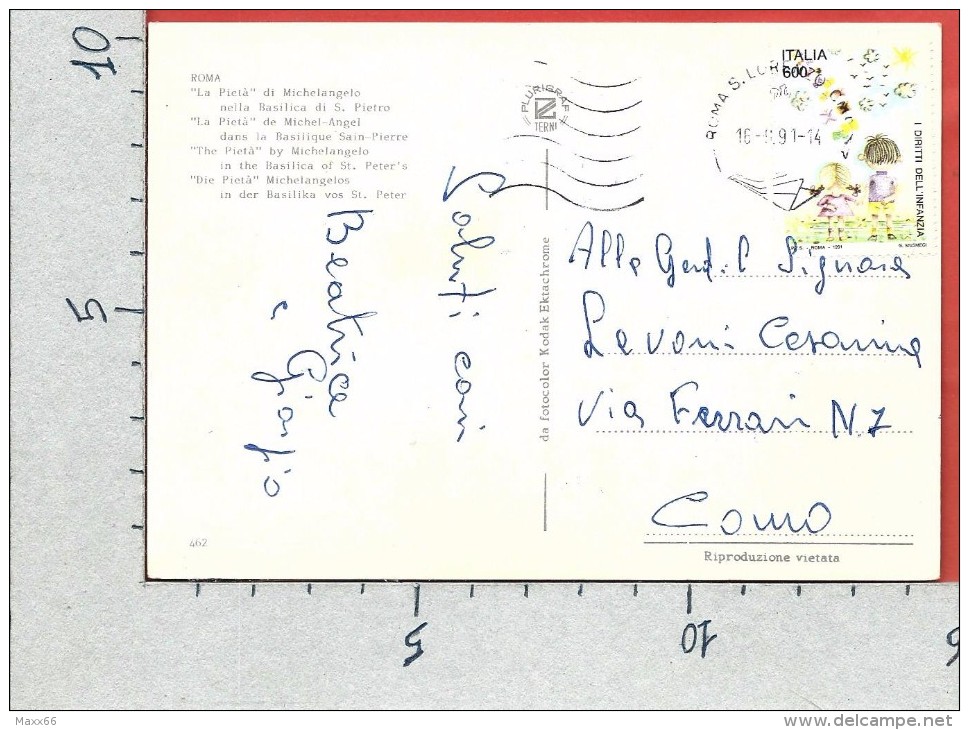 ROMA
"La Pietà" di Michelangelo
nella Basilica di S. Pietro
"La Pietà" de Michel-Angel
dans la Basilique Sain-Pierre
"The Pietà" by Michelangelo
in the Basilica of St. Peter's
"Die Pietà" Michelangelos
in der Basilika vos St. Peter
PLURIGRAF
TERNI
ITALIA
600
I DIRITTI DELL'INFANZIA
ROMA - 1991
ROMA S. LOR
91-14
Saluti cari
Beatrice
e Giorgio
da fotocolor Kodak Ektachrome
Alla Gent.l Signora
Lavoni Cesarina
Via Ferrari N. 7
Como
Riproduzione vietata
462
10
5
5
10
Maxx66
www.delcampe.net